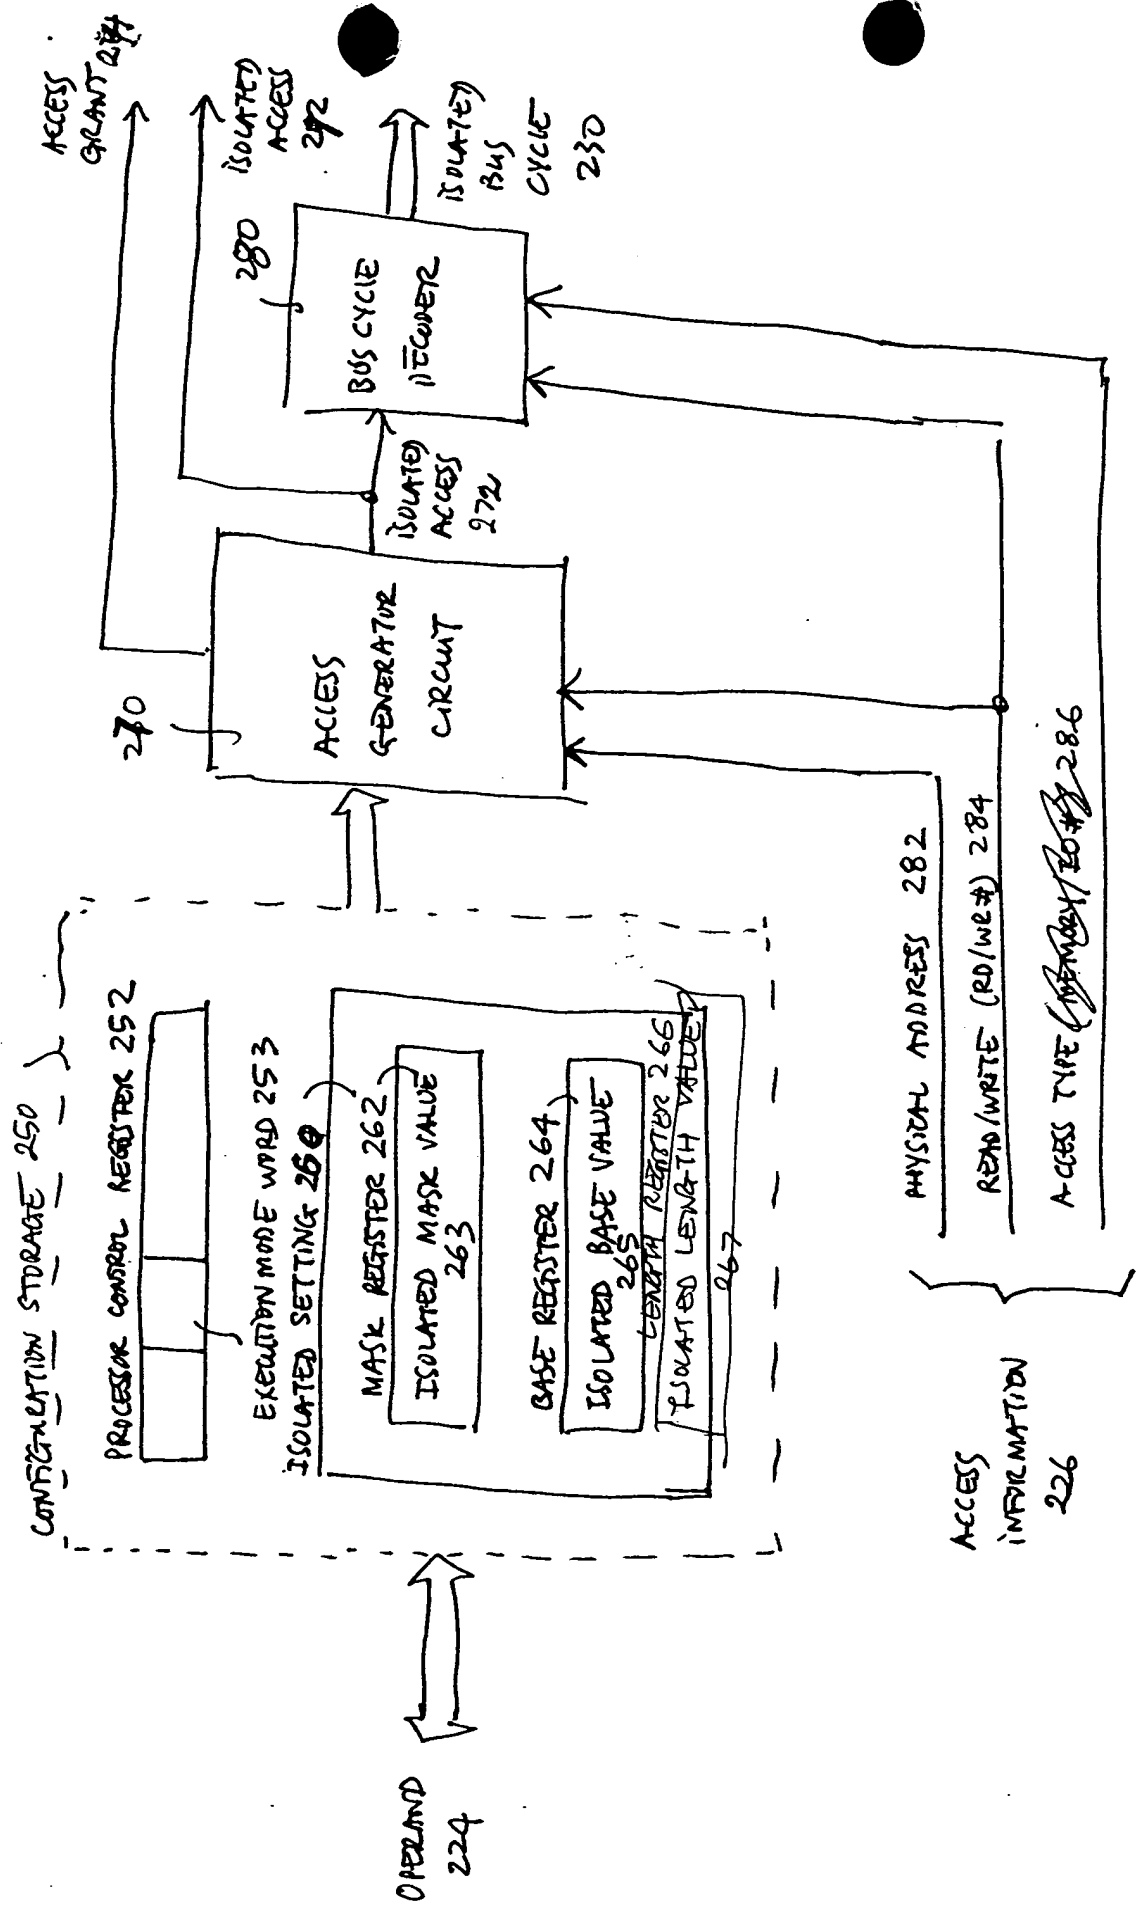 CONFIGURATION STORAGE 250
PROCESSOR CONTROL REGISTER 252
EXECUTION MODE WORD 253
ISOLATED SETTING 260
MASK REGISTER 262
ISOLATED MASK VALUE
263
BASE REGISTER 264
ISOLATED BASE VALUE
265
LENGTH REGISTER 266
ISOLATED LENGTH VALUE
267
OPERAND
224
270
ACCESS
GENERATOR
CIRCUIT
ISOLATED
ACCESS
272
280
BUS CYCLE
DECODER
ACCESS
GRANT 274
ISOLATED
ACCESS
272
ISOLATED
BUS
CYCLE
230
PHYSICAL ADDRESS 282
READ/WRITE (RD/WR#) 284
ACCESS TYPE (MEMORY/IO#) 286
ACCESS
INFORMATION
226